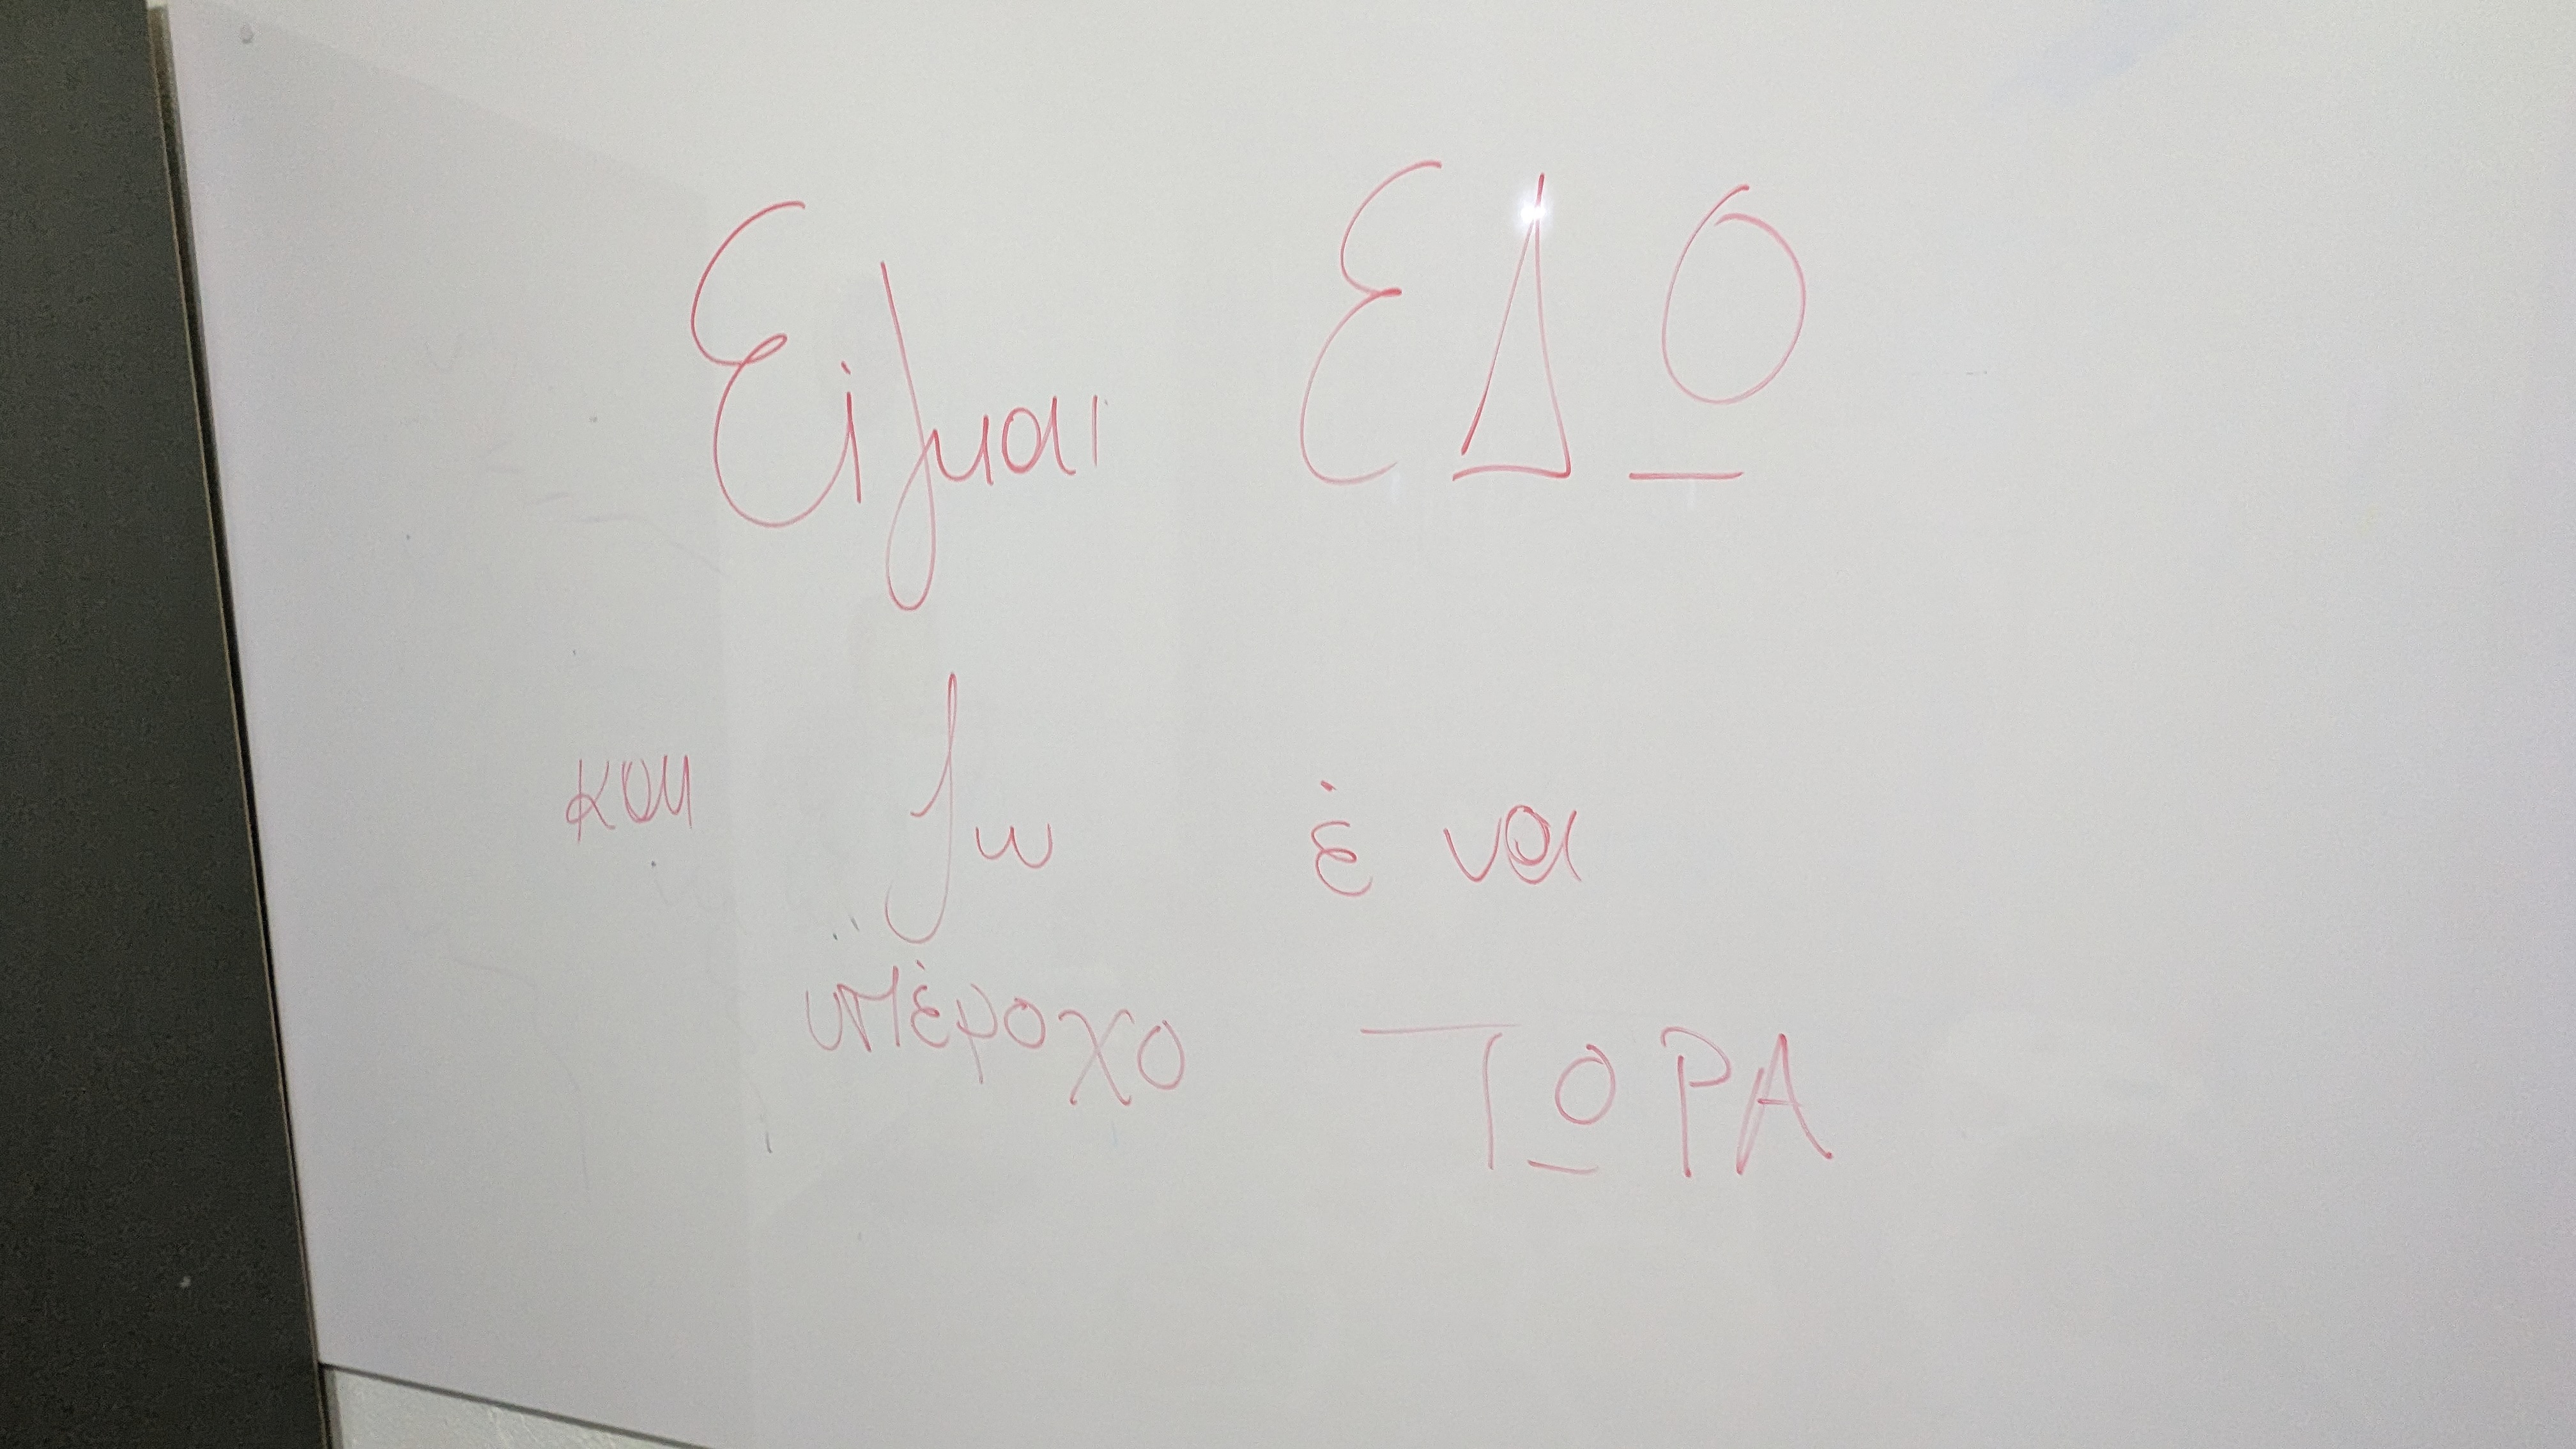 Είμαι ΕΔΩ
και ζω ένα
υπέροχο ΤΩΡΑ